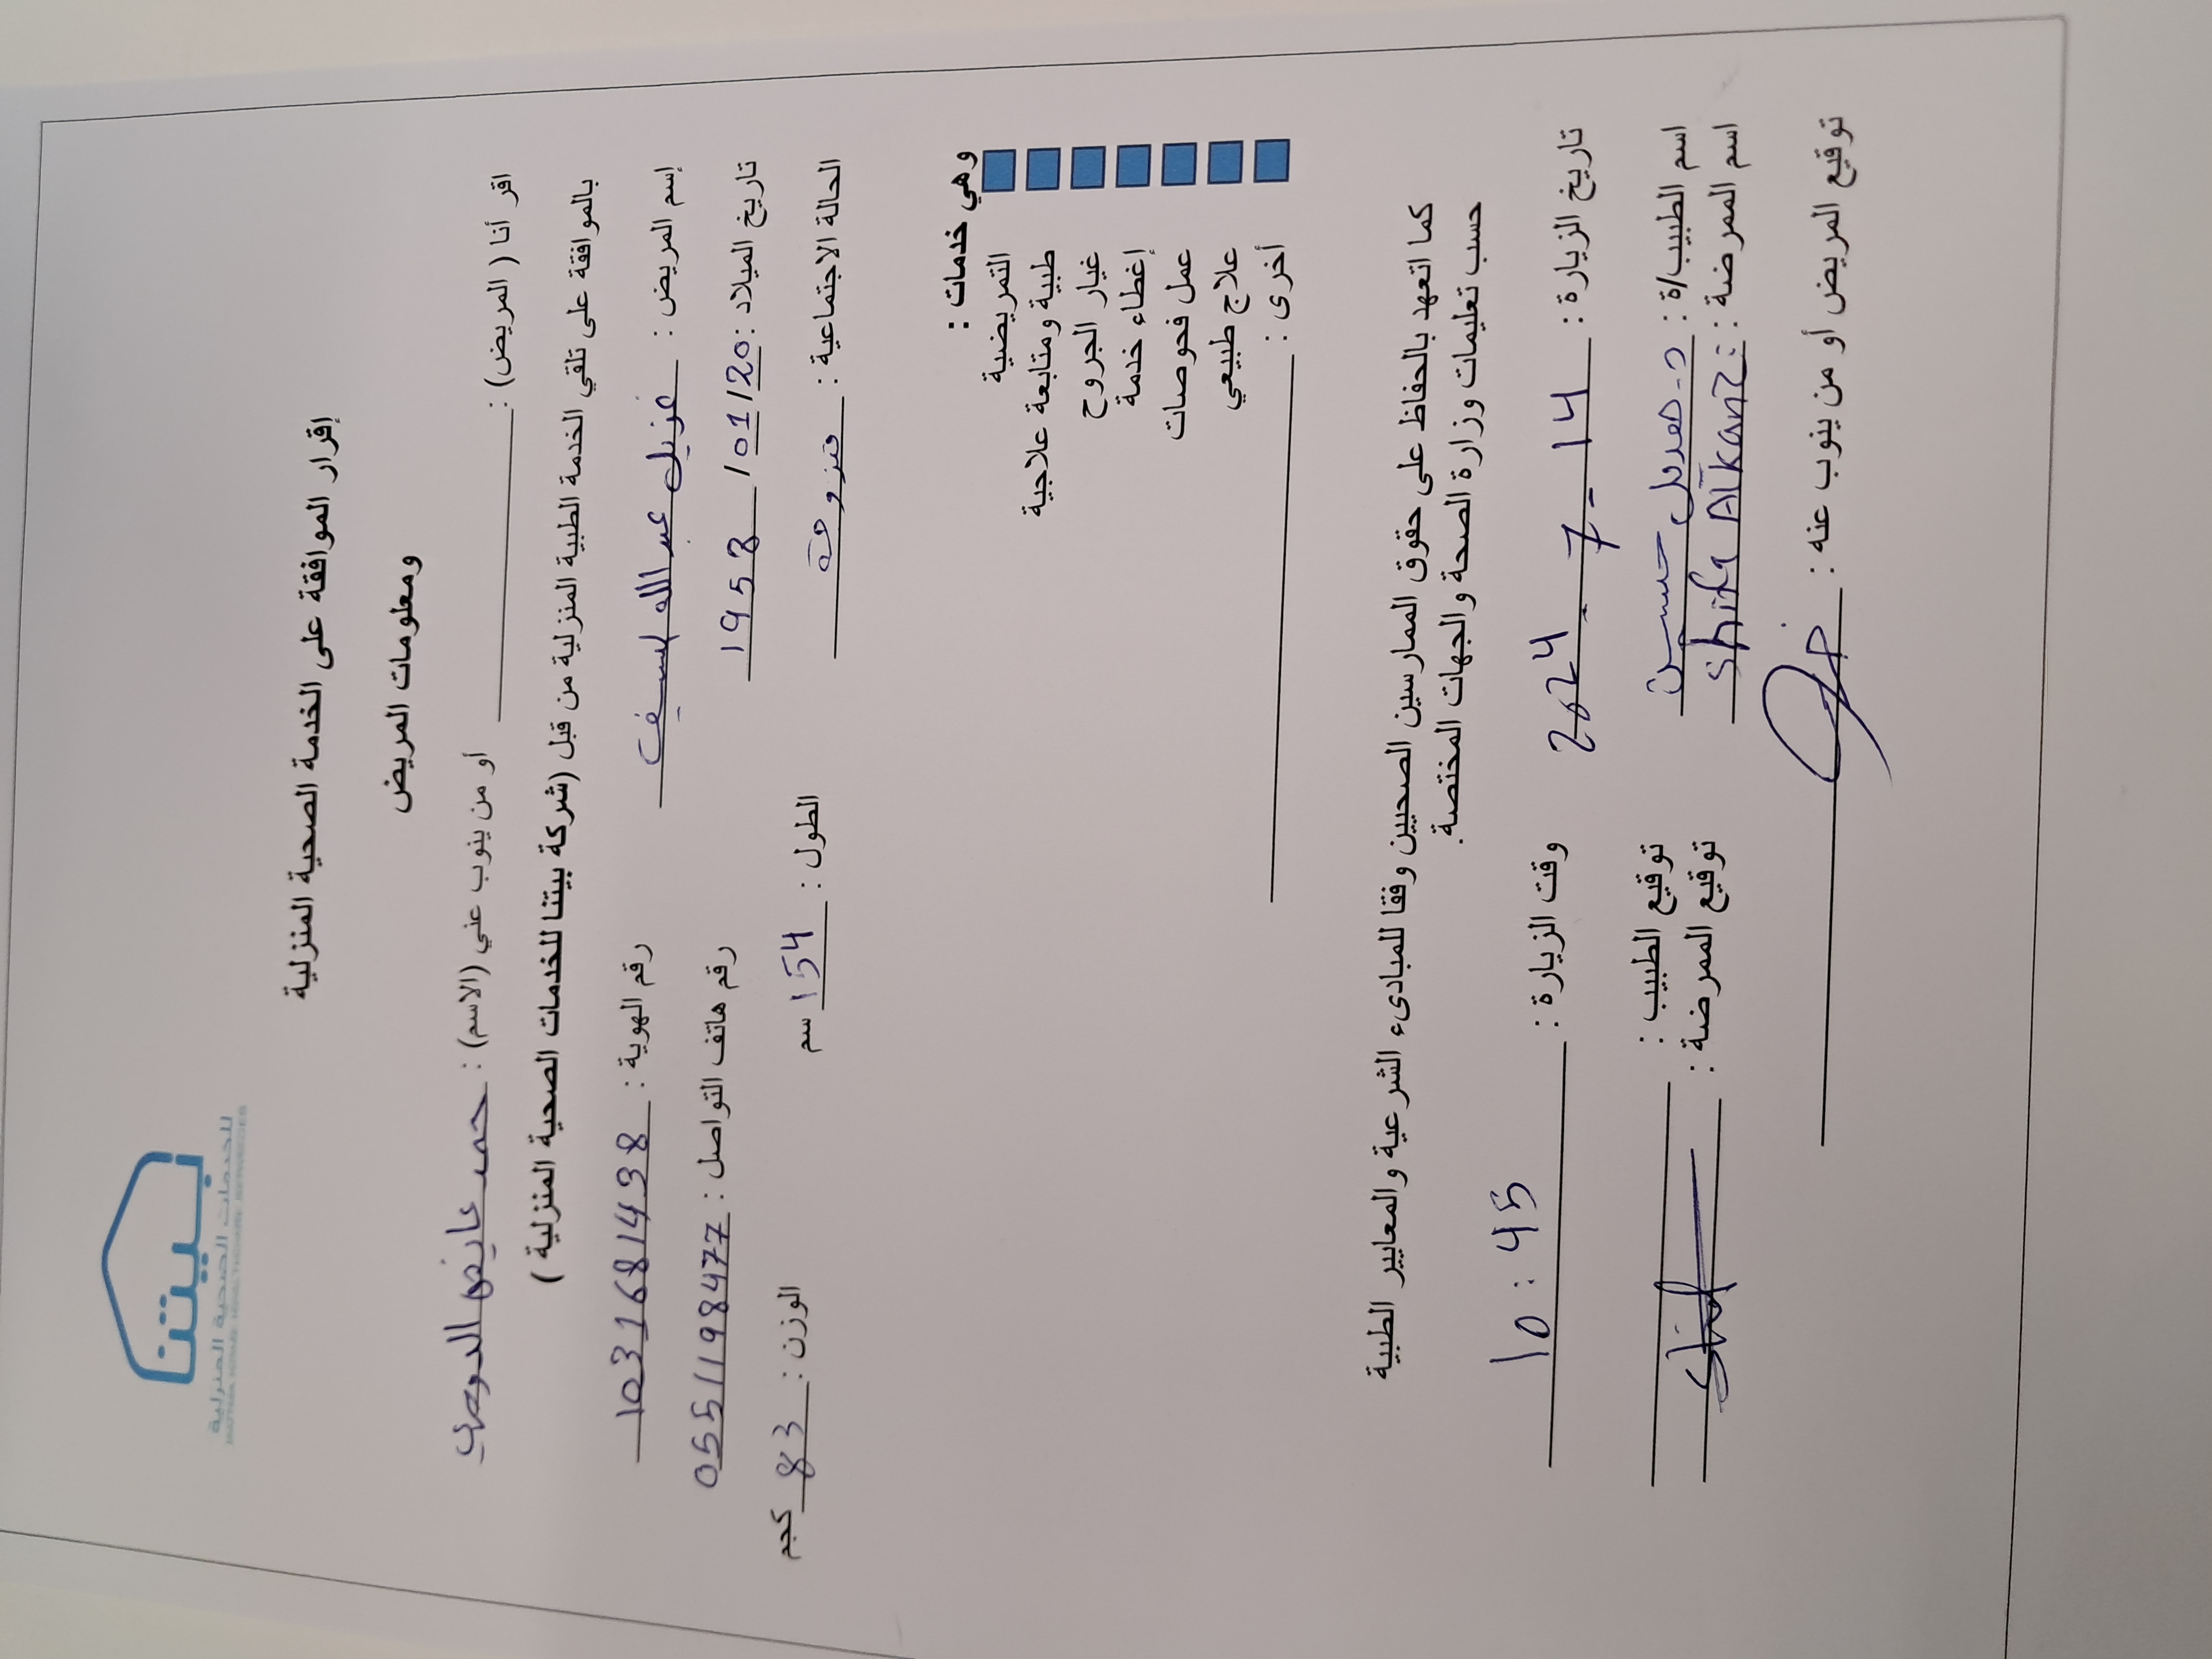 بيتنا
للخدمات الصحية المنزلية
إقرار الموافقة على الخدمة الصحية المنزلية
ومعلومات المريض
اقر أنا ( المريض) : أو من ينوب عني (الاسم) : حمد عايض الدوسري
بالموافقة على تلقي الخدمة الطبية المنزلية من قبل (شركة بيتنا للخدمات الصحية المنزلية )
إسم المريض : عبدالله رقم الهوية : 1031681438
تاريخ الميلاد : 20/ 01/ 1958 رقم هاتف التواصل : 0551198477
الحالة الاجتماعية : متزوجة الطول : 154 سم الوزن : 83 كجم
وهي خدمات :
التمريضية
طبية ومتابعة علاجية
غيار الجروح
إغطاء خدمة
عمل فحوصات
علاج طبيعي
أخرى :
كما اتعهد بالحفاظ على حقوق الممارسين الصحيين وفقا للمبادىء الشرعية والمعايير الطبية
حسب تعليمات وزارة الصحة والجهات المختصة.
تاريخ الزيارة : 2024 - 7 - 14 وقت الزيارة : 10 : 45
اسم الطبيب/ة : د. هديل حسين توقيع الطبيب :
اسم الممرضة : Shifa توقيع الممرضة :
توقيع المريض أو من ينوب عنه :